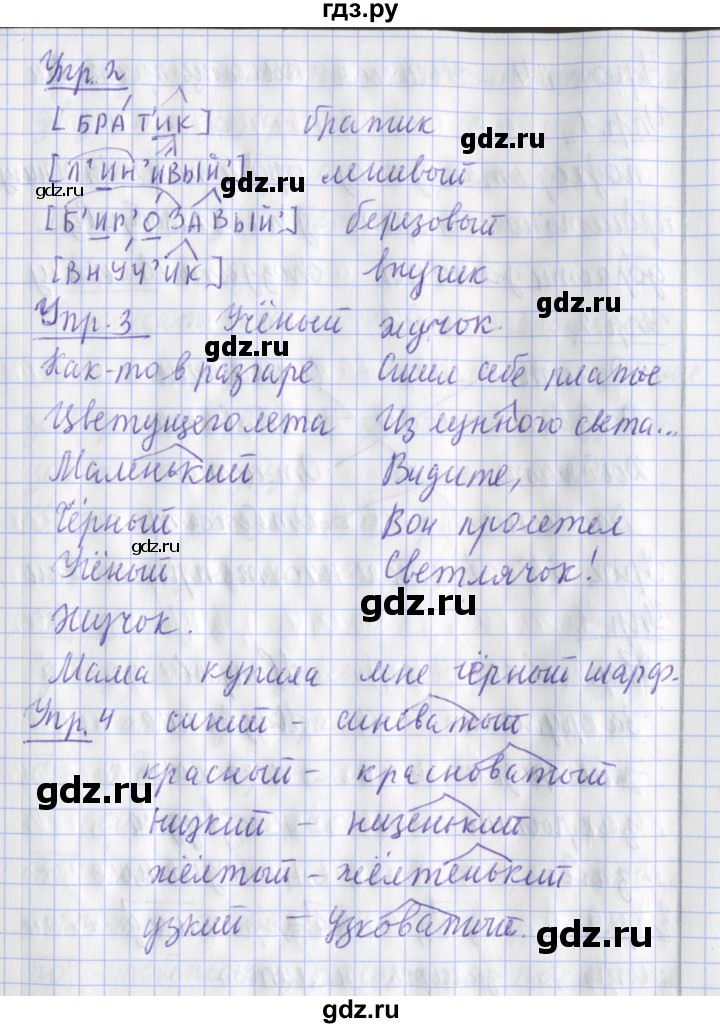 гдз.ру
Упр. 2
[БРАТ'ИК] братик
[Л'ИН'ИВЫЙ'] ленивый
[Б'ИР'ОЗАВЫЙ'] березовый
[ВНУЧ'ИК] внучик
Упр. 3 Учёный жучок.
Как-то в разгаре Сшил себе платье
Цветущего лета Из лунного света...
Маленький Видите,
Чёрный Вон пролетел
Учёный Светлячок!
Жучок.
Мама купила мне чёрный шарф.
Упр. 4 синий - синеватый
красный - красноватый
низкий - низенький
жёлтый - жёлтенький
узкий - узковатый.
gdz.ru
gdz.ru
gdz.ru
gdz.ru
gdz.ru
gdz.ru
gdz.ru
gdz.ru
gdz.ru
gdz.ru
gdz.ru
gdz.ru
gdz.ru